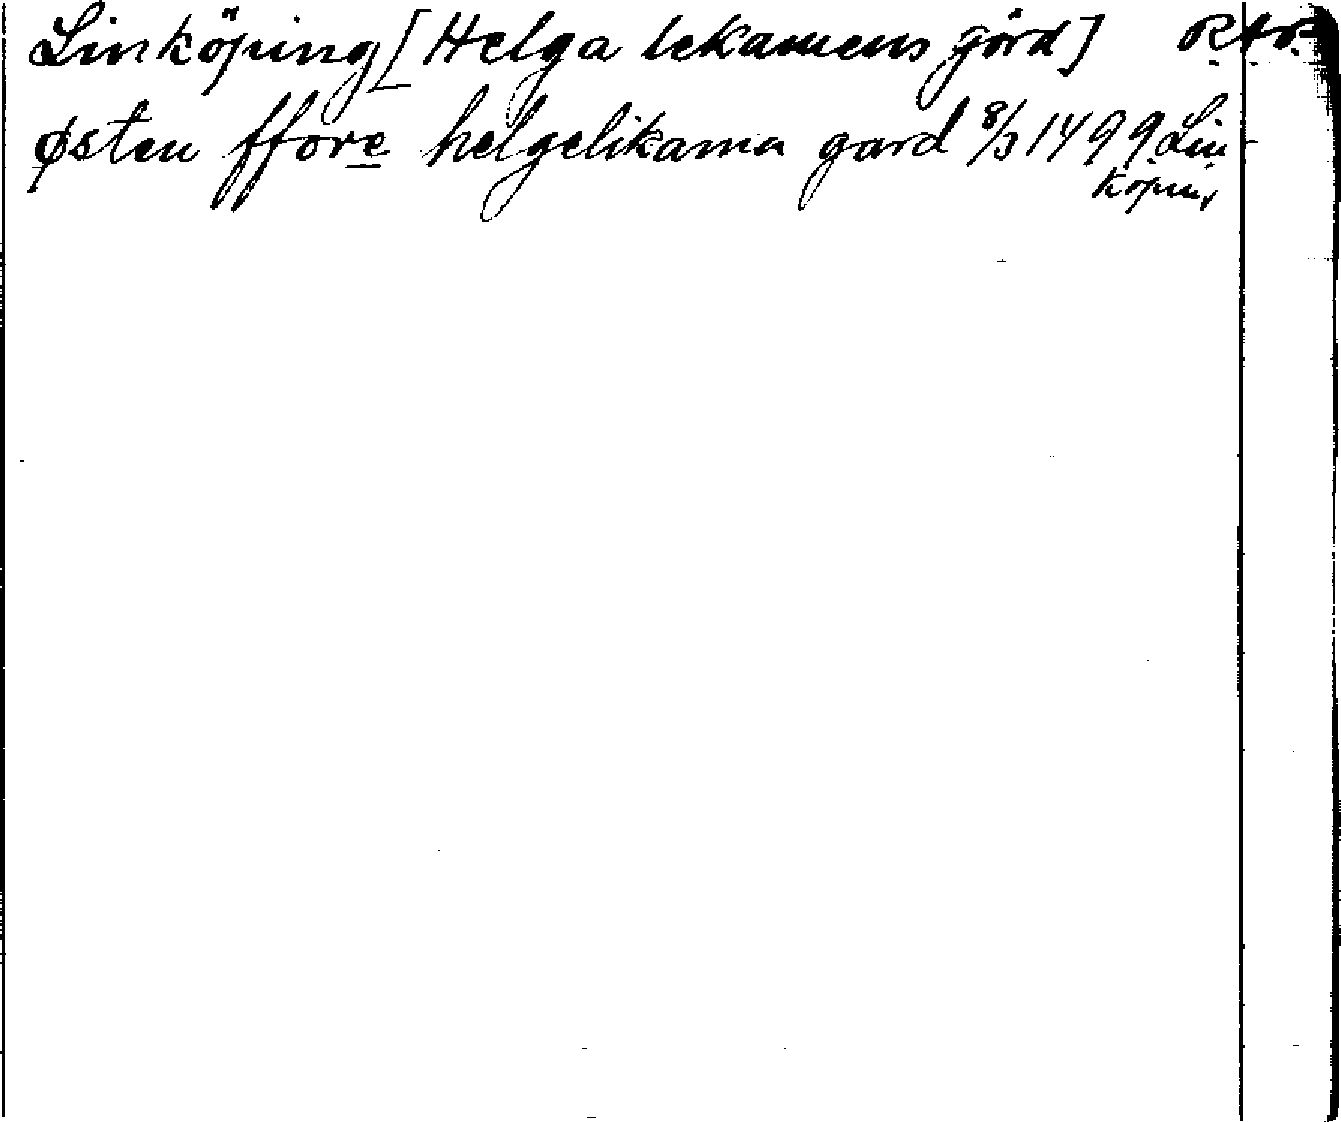 Linköping [Helga lekamens gård] RAp.
østen ffore helgelikama gard 8/3 1499 Lin-
köping